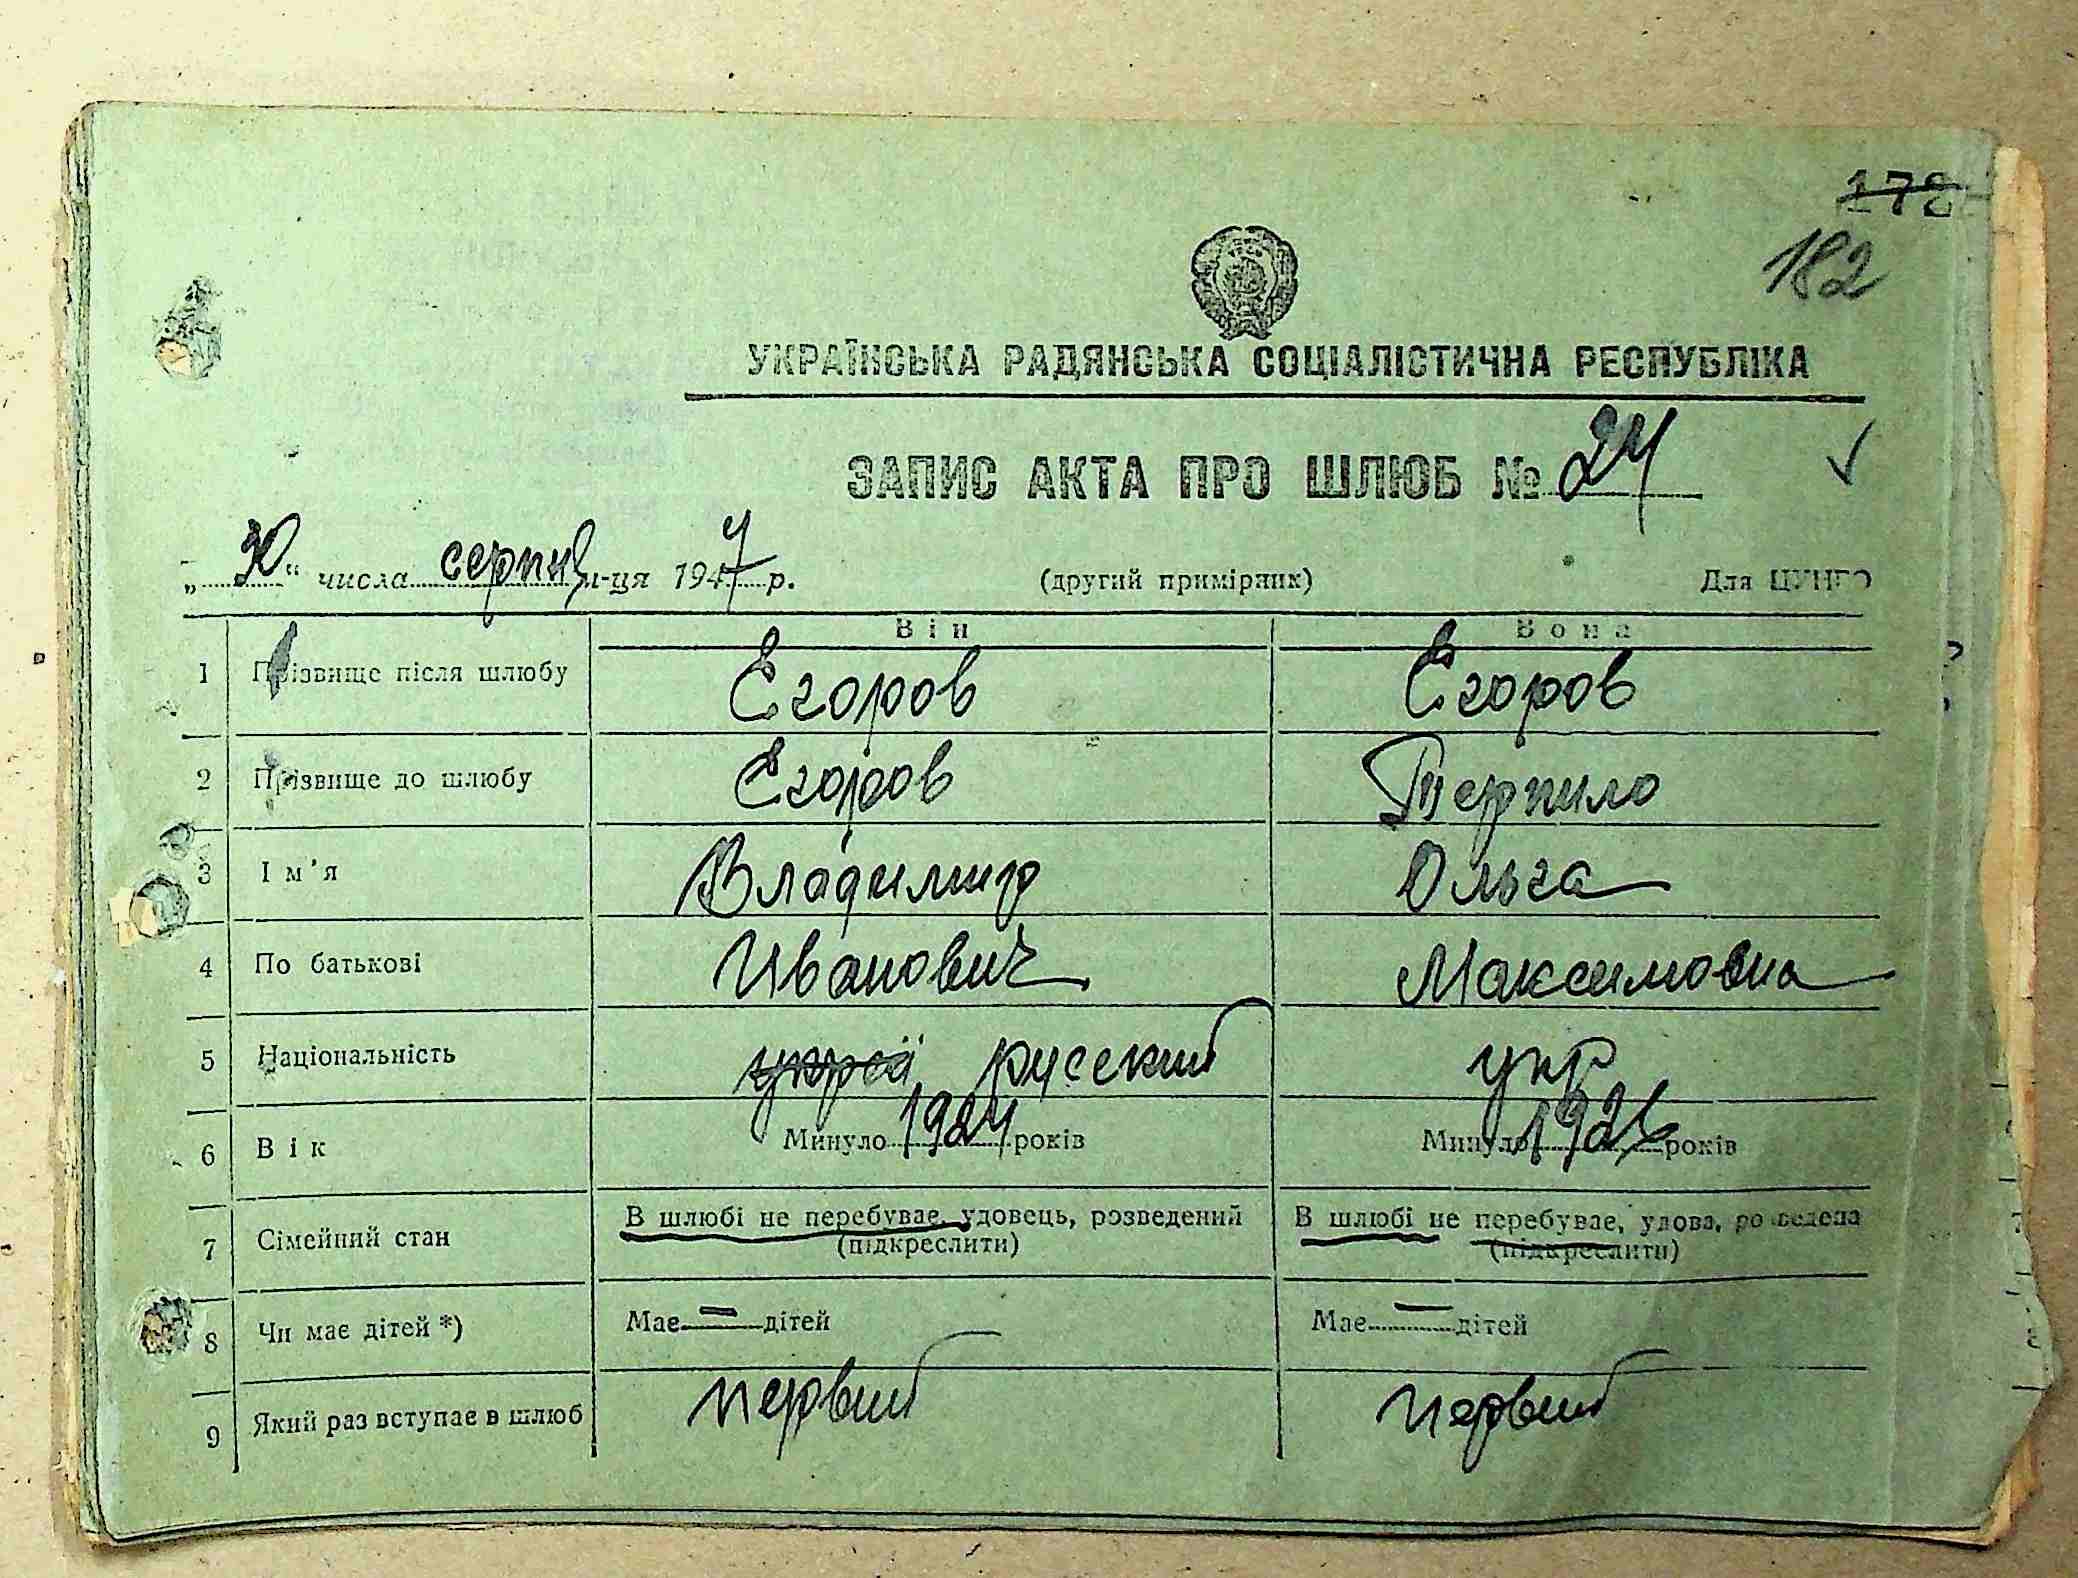 178
182
УКРАЇНСЬКА РАДЯНСЬКА СОЦІАЛІСТИЧНА РЕСПУБЛІКА
ЗАПИС АКТА ПРО ШЛЮБ № 24
„30“ числа серпня м-ця 1947 р. (другий примірник) Для ЦУНГО
Він Вона
1 Прізвище після шлюбу Егоров Егоров
2 Прізвище до шлюбу Егоров Терпило
3 Ім'я Владимир Ольга
4 По батькові Иванович Максимовна
5 Національність русский укр
6 Вік Минуло 1924 років Минуло років
7 Сімейний стан В шлюбі не перебуває, удовець, розведений В шлюбі не перебуває, удова, розведена
(підкреслити) (підкреслити)
8 Чи має дітей *) Має — дітей Має — дітей
9 Який раз вступає в шлюб первий первий